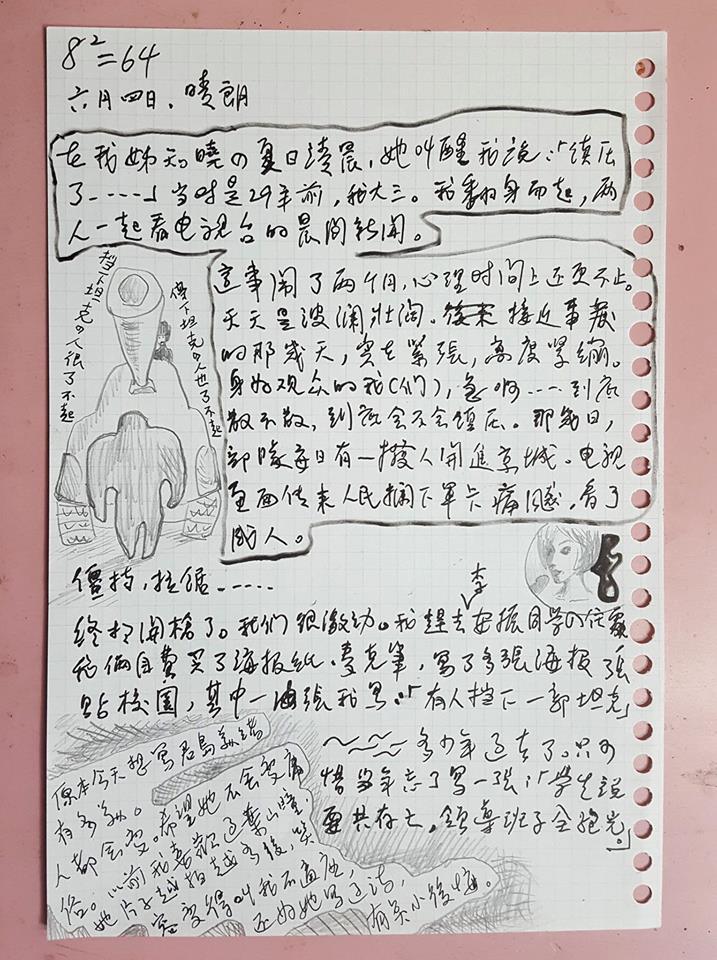 8²=64
六月四日、晴朗
在我姊知曉の夏日清晨,她叫醒我說:「鎮压
了……」当时是29年前,我大三。我翻身而起,两
人一起看电視台的晨間新聞。
這事鬧了两个月,心理时间上还更不止。
天天是波澜壮濶、接近事發
的那幾天,实在緊張,高度緊繃。
身为观众的我(们),急啊……到底
散不散,到底会不会鎮压。那幾日,
部隊每日有一撥人開進京城。电視
画面传来人民攔下軍卡痛哭,看了
感人。
挡下坦克の人很了不起
停下坦克の人也了不起
僵持,拉鋸……
終於開槍了。我们很激动。我趕去李安振同学の住處
和俩自費買了海报紙、麥克筆,寫了多張海报張
貼校園,其中一張我写:「有人挡下一部坦克」
多少年过去了。只可
惜当年忘了写一張:「学生説
要共存亡,領導班子全跑光。」
原本今天想写君島
有多
人都会变。希望她不会变
以前我喜歡
她片子越拍越多後,笑
容变得叫我不適应,
还为她写过詩,
有关小後悔。